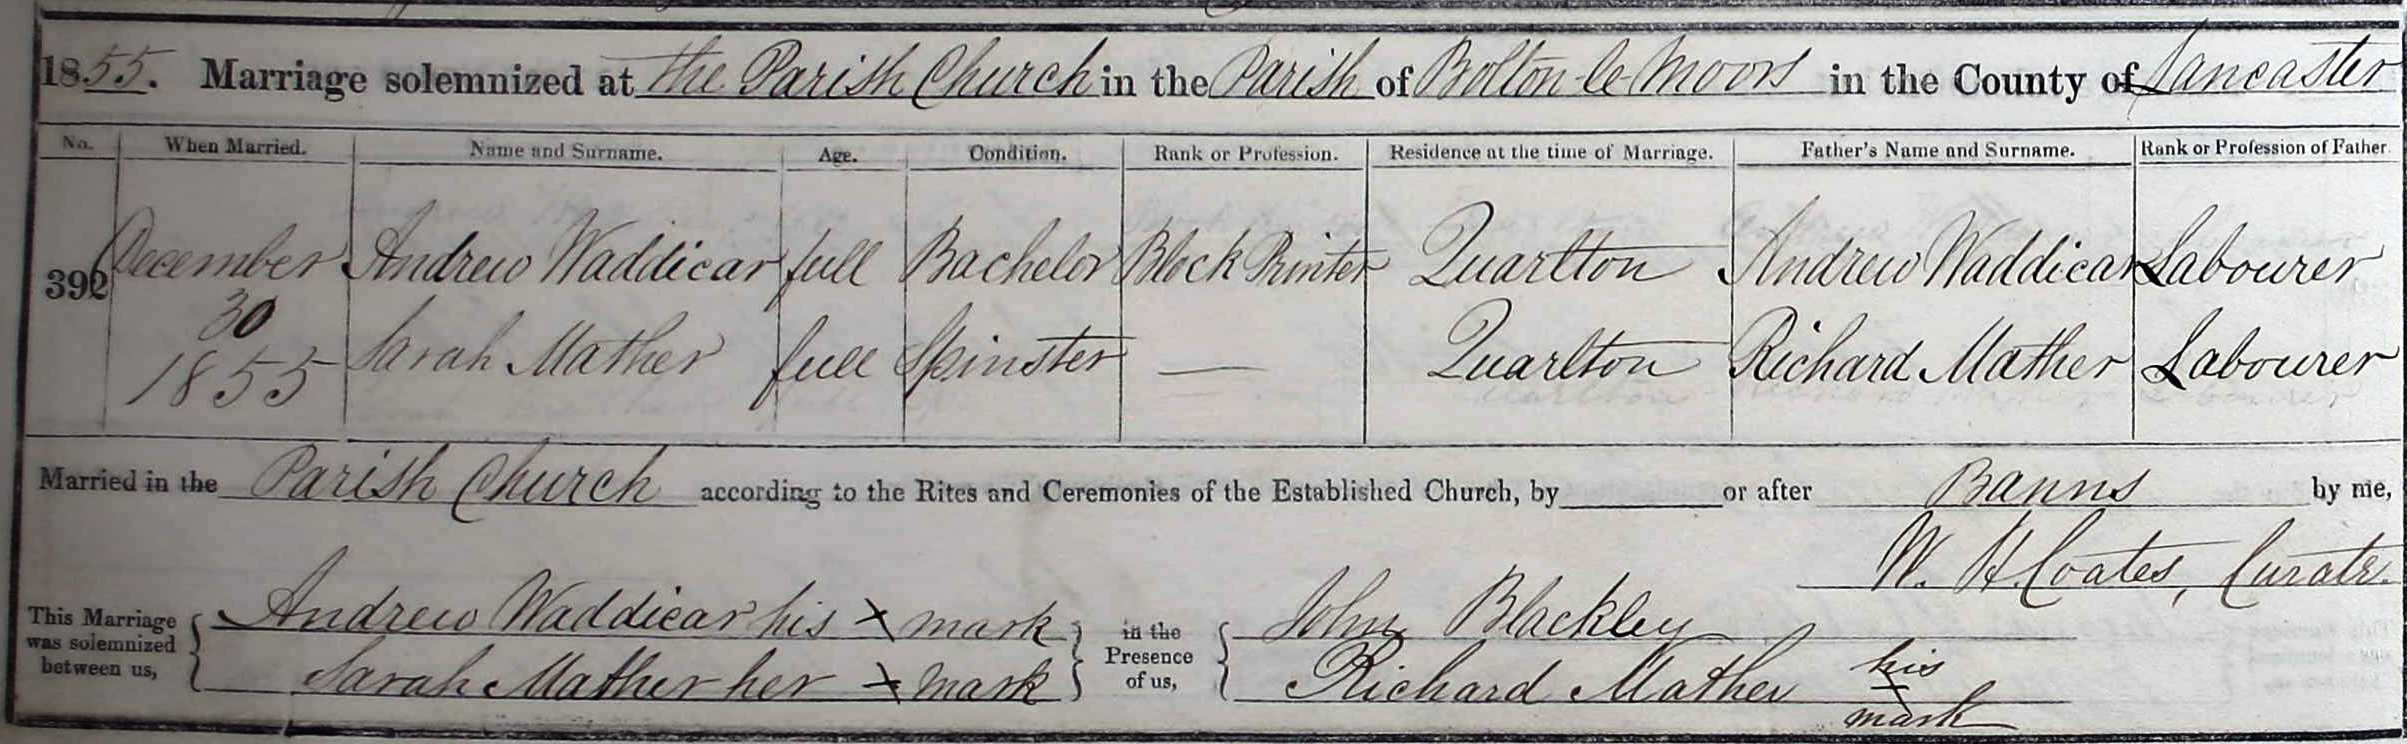 1855. Marriage solemnized at the Parish Church in the Parish of Bolton-le-Moors in the County of Lancaster
No. When Married. Name and Surname. Age. Condition. Rank or Profession. Residence at the time of Marriage. Father's Name and Surname. Rank or Profession of Father.
392 December Andrew Waddicar full Bachelor Block Printer Quarlton Andrew Waddicar Labourer
30
1855 Sarah Mather full Spinster — Quarlton Richard Mather Labourer
Married in the Parish Church according to the Rites and Ceremonies of the Established Church, by or after Banns by me,
W. H. Coates, Curate.
This Marriage was solemnized between us, Andrew Waddicar his X mark in the Presence of us, John Blackley
Sarah Mather her X mark Richard Mather his X mark